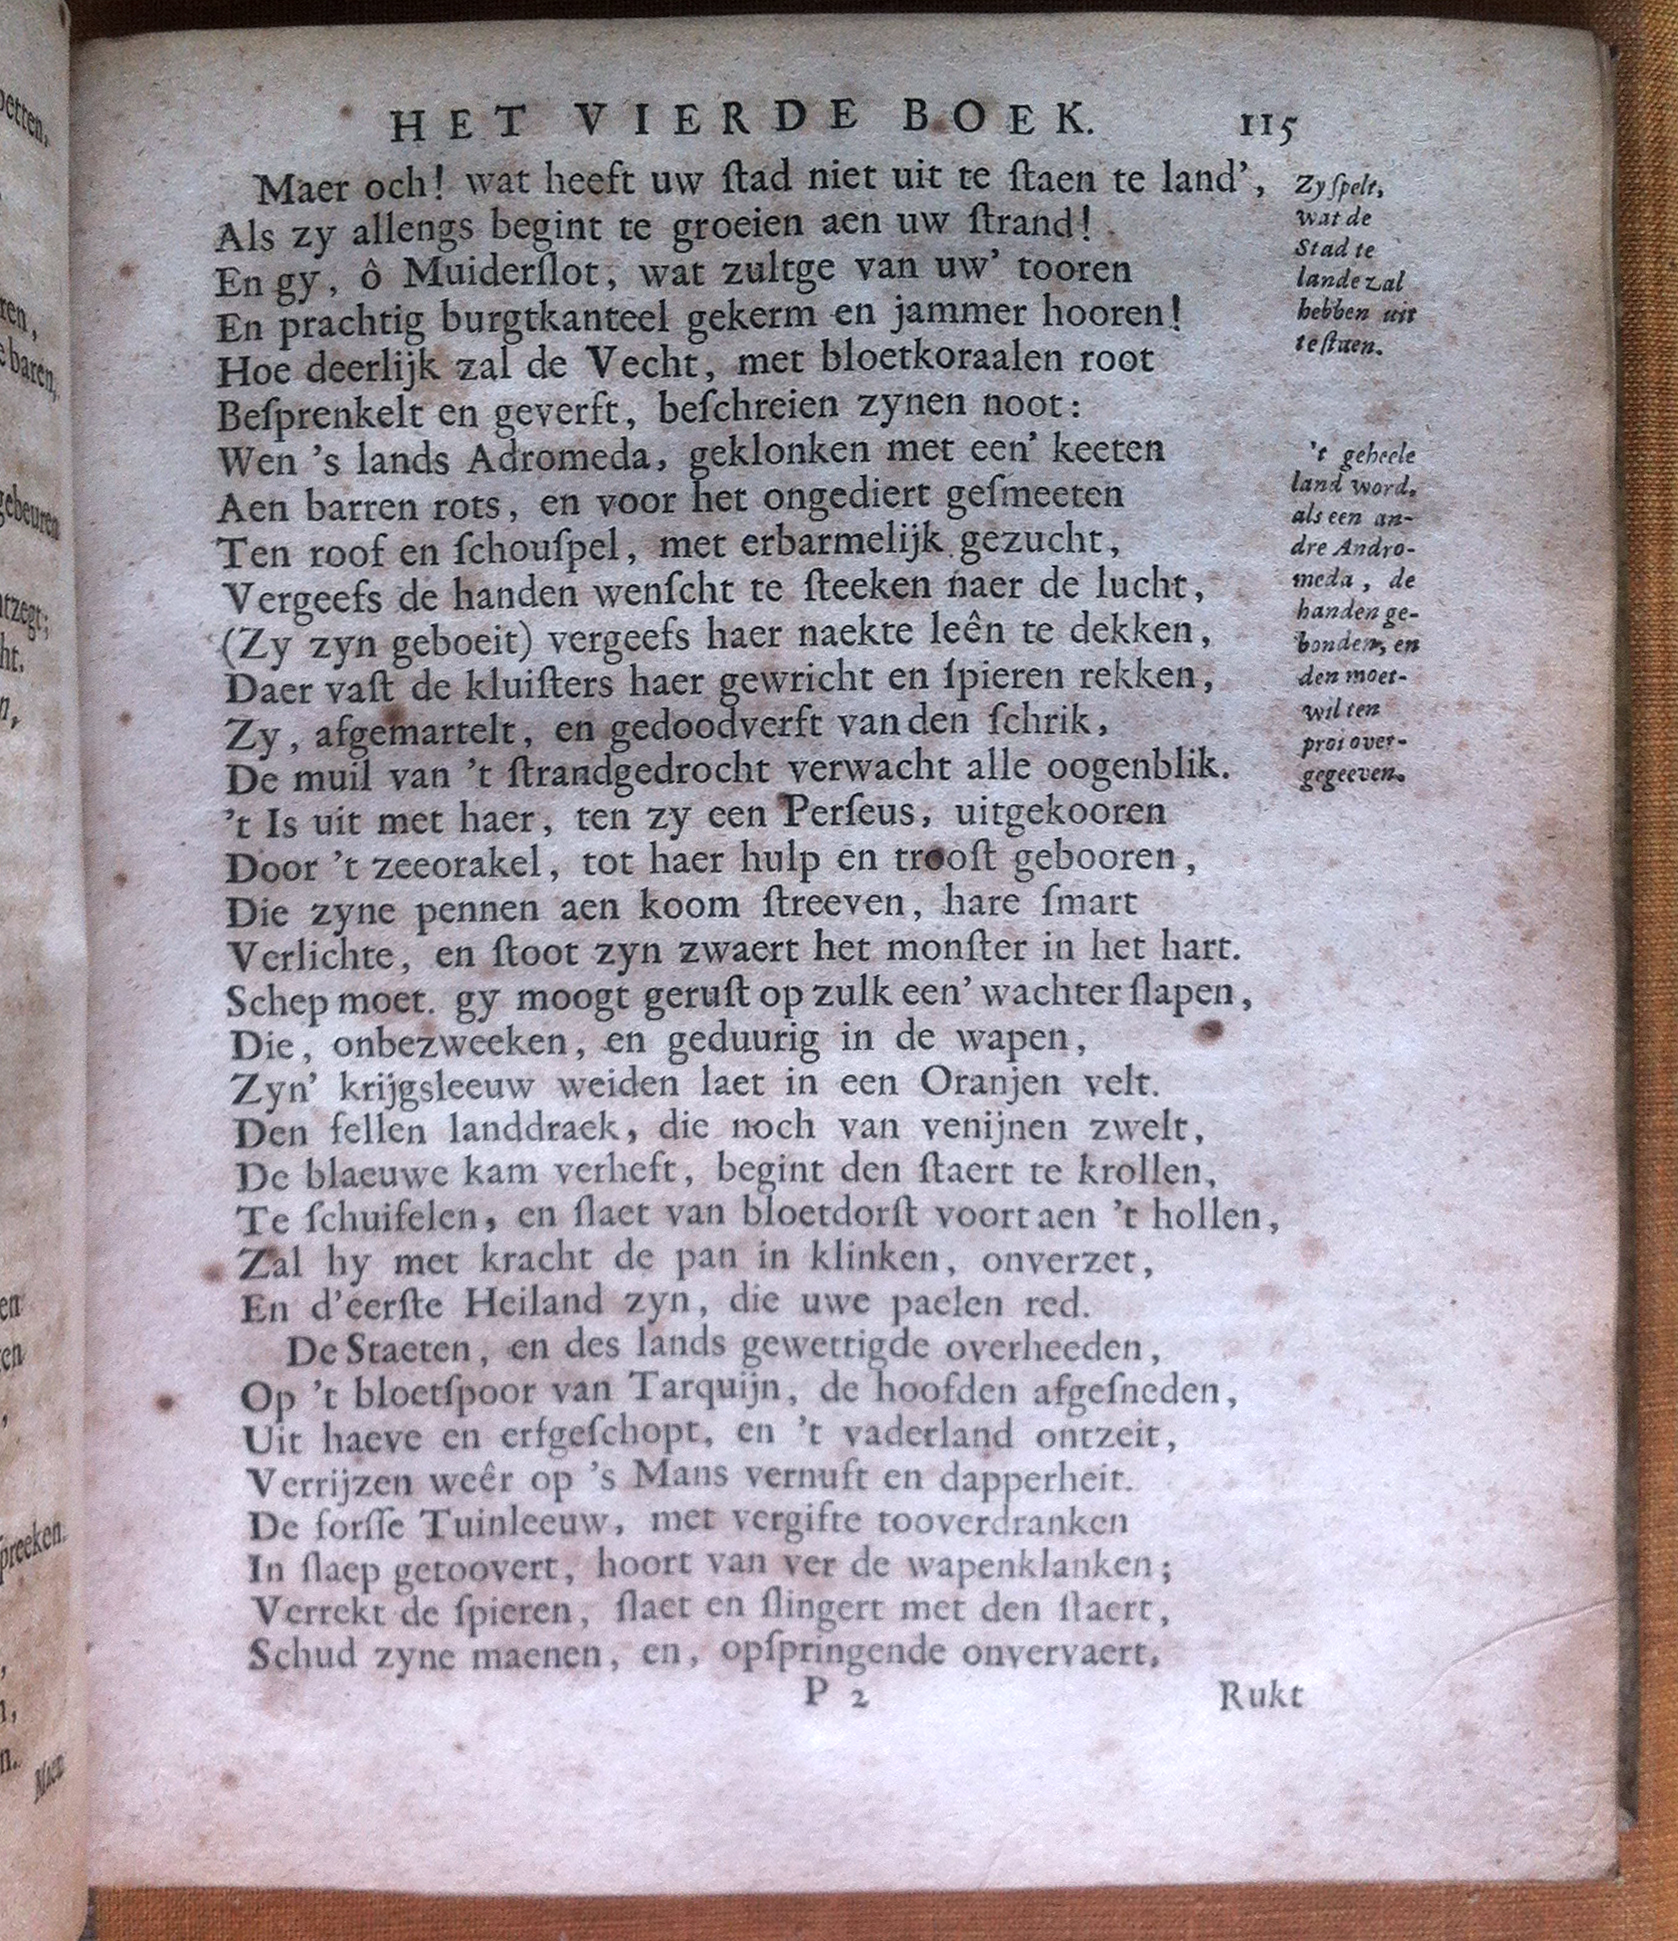 HET VIERDE BOEK. 115
Maer och! wat heeft uw ſtad niet uit te ſtaen te land',
Als zy allengs begint te groeien aen uw ſtrand!
En gy, ô Muiderſlot, wat zultge van uw' tooren
En prachtig burgtkanteel gekerm en jammer hooren!
Hoe deerlijk zal de Vecht, met bloetkoraalen root
Beſprenkelt en geverft, beſchreien zynen noot:
Wen 's lands Adromeda, geklonken met een' keeten
Aen barren rots, en voor het ongediert geſmeeten
Ten roof en ſchouſpel, met erbarmelijk gezucht,
Vergeefs de handen wenſcht te ſteeken naer de lucht,
(Zy zyn geboeit) vergeefs haer naekte leên te dekken,
Daer vaſt de kluiſters haer gewricht en ſpieren rekken,
Zy, afgemartelt, en gedoodverft van den ſchrik,
De muil van 't ſtrandgedrocht verwacht alle oogenblik.
't Is uit met haer, ten zy een Perſeus, uitgekooren
Door 't zeeorakel, tot haer hulp en trooſt gebooren,
Die zyne pennen aen koom ſtreeven, hare ſmart
Verlichte, en ſtoot zyn zwaert het monſter in het hart.
Schep moet. gy moogt geruſt op zulk een' wachter ſlapen,
Die, onbezweeken, en geduurig in de wapen,
Zyn' krijgsleeuw weiden laet in een Oranjen velt.
Den fellen landdraek, die noch van venijnen zwelt,
De blaeuwe kam verheft, begint den ſtaert te krollen,
Te ſchuifelen, en ſlaet van bloetdorſt voort aen 't hollen,
Zal hy met kracht de pan in klinken, onverzet,
En d'eerſte Heiland zyn, die uwe paelen red.
De Staeten, en des lands gewettigde overheeden,
Op 't bloetſpoor van Tarquijn, de hoofden afgeſneden,
Uit haeve en erfgeſchopt, en 't vaderland ontzeit,
Verrijzen weêr op 's Mans vernuft en dapperheit.
De forſſe Tuinleeuw, met vergifte tooverdranken
In ſlaep getoovert, hoort van ver de wapenklanken;
Verrekt de ſpieren, ſlaet en ſlingert met den ſtaert,
Schud zyne maenen, en, opſpringende onvervaert,
P 2 Rukt
Zy ſpelt,
wat de
Stad te
lande zal
hebben uit
te ſtaen.
't geheele
land word,
als een an-
dre Andro-
meda, de
handen ge-
bonden, en
den moet-
wil ten
proi over-
gegeeven.
oetten,
ren,
e baren,
gebeuren
ntzegt;
ht.
n,
en
en
,
ſpreeken.
,
n,
n.
Maer